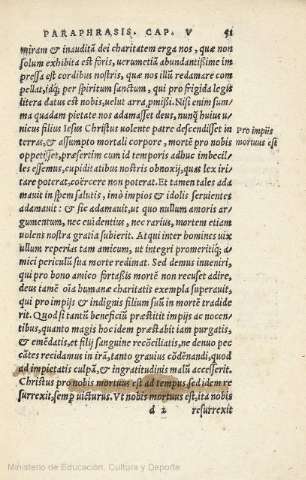 PARAPHRASIS. CAP. V 51
miram & inauditā dei charitatem erga nos, quæ non
solum exhibita est foris, uerumetiā abundantissime im
pressa est cordibus nostris, quæ nos illū redamare com
pellat, idq; per spiritum sanctum, qui pro frigida legis
litera datus est nobis, uelut arra pmissi. Nisi enim sum/
ma quadam pietate nos adamasset deus, nunq̃ huius u/
nicus filius Iesus Christus uolente patre descendisset in
terras, & assumpto mortali corpore, mortē pro nobis
oppetijsset, præsertim cum id temporis adhuc imbecil/
les essemus, cupiditatibus nostris obnoxij, quas lex iri/
tare poterat, coërcere non poterat. Et tamen tales ada
mauit in spem salutis, imò impios & idolis seruientes
adamauit: & sic adamauit, ut quo nullum amoris ar/
gumentum, nec euidentius, nec rarius, mortem etiam
uolent nostra gratia subierit. At qui inter homines uix
ullum reperias tam amicum, ut integri promeritiq; a/
mici periculū sua morte redimat. Sed demus inueniri,
qui pro bono amico fortaßis mortē non recuset adire,
deus tamē oīa humanæ charitatis exempla superauit,
qui pro impijs & indignis filium suū in mortē tradide
rit. Quod si tantū beneficiū præstitit impijs ac nocen/
tibus, quanto magis hoc idem præstabit iam purgatis,
& emēdatis, et filij sanguine recōciliatis, ne denuo pec
cātes recidamus in irā, tanto grauius cōdēnandi, quod
ad impietatis culpā, & ingratitudinis malū accesserit.
Christus pro nobis mortuus est ad tempus sed idem re
surrexit, semp uicturus. Vt nobis mortuus est, ita nobis
d 2 resurrexit
Pro impiis
mortuus est
Ministerio de Educación, Cultura y Deporte